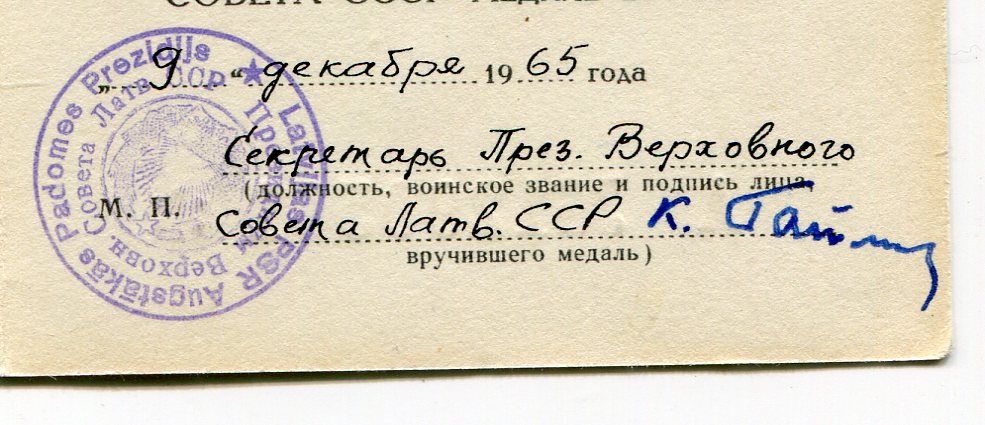 СОВЕТА СССР
„ 9 “ декабря 1965 года
Секретарь През. Верховного
(должность, воинское звание и подпись лица,
М. П.
Совета Латв. ССР К.
вручившего медаль)
Latvijas PSR Augstākās Padomes Prezidijs
Верховн. Совета Латв. ССР